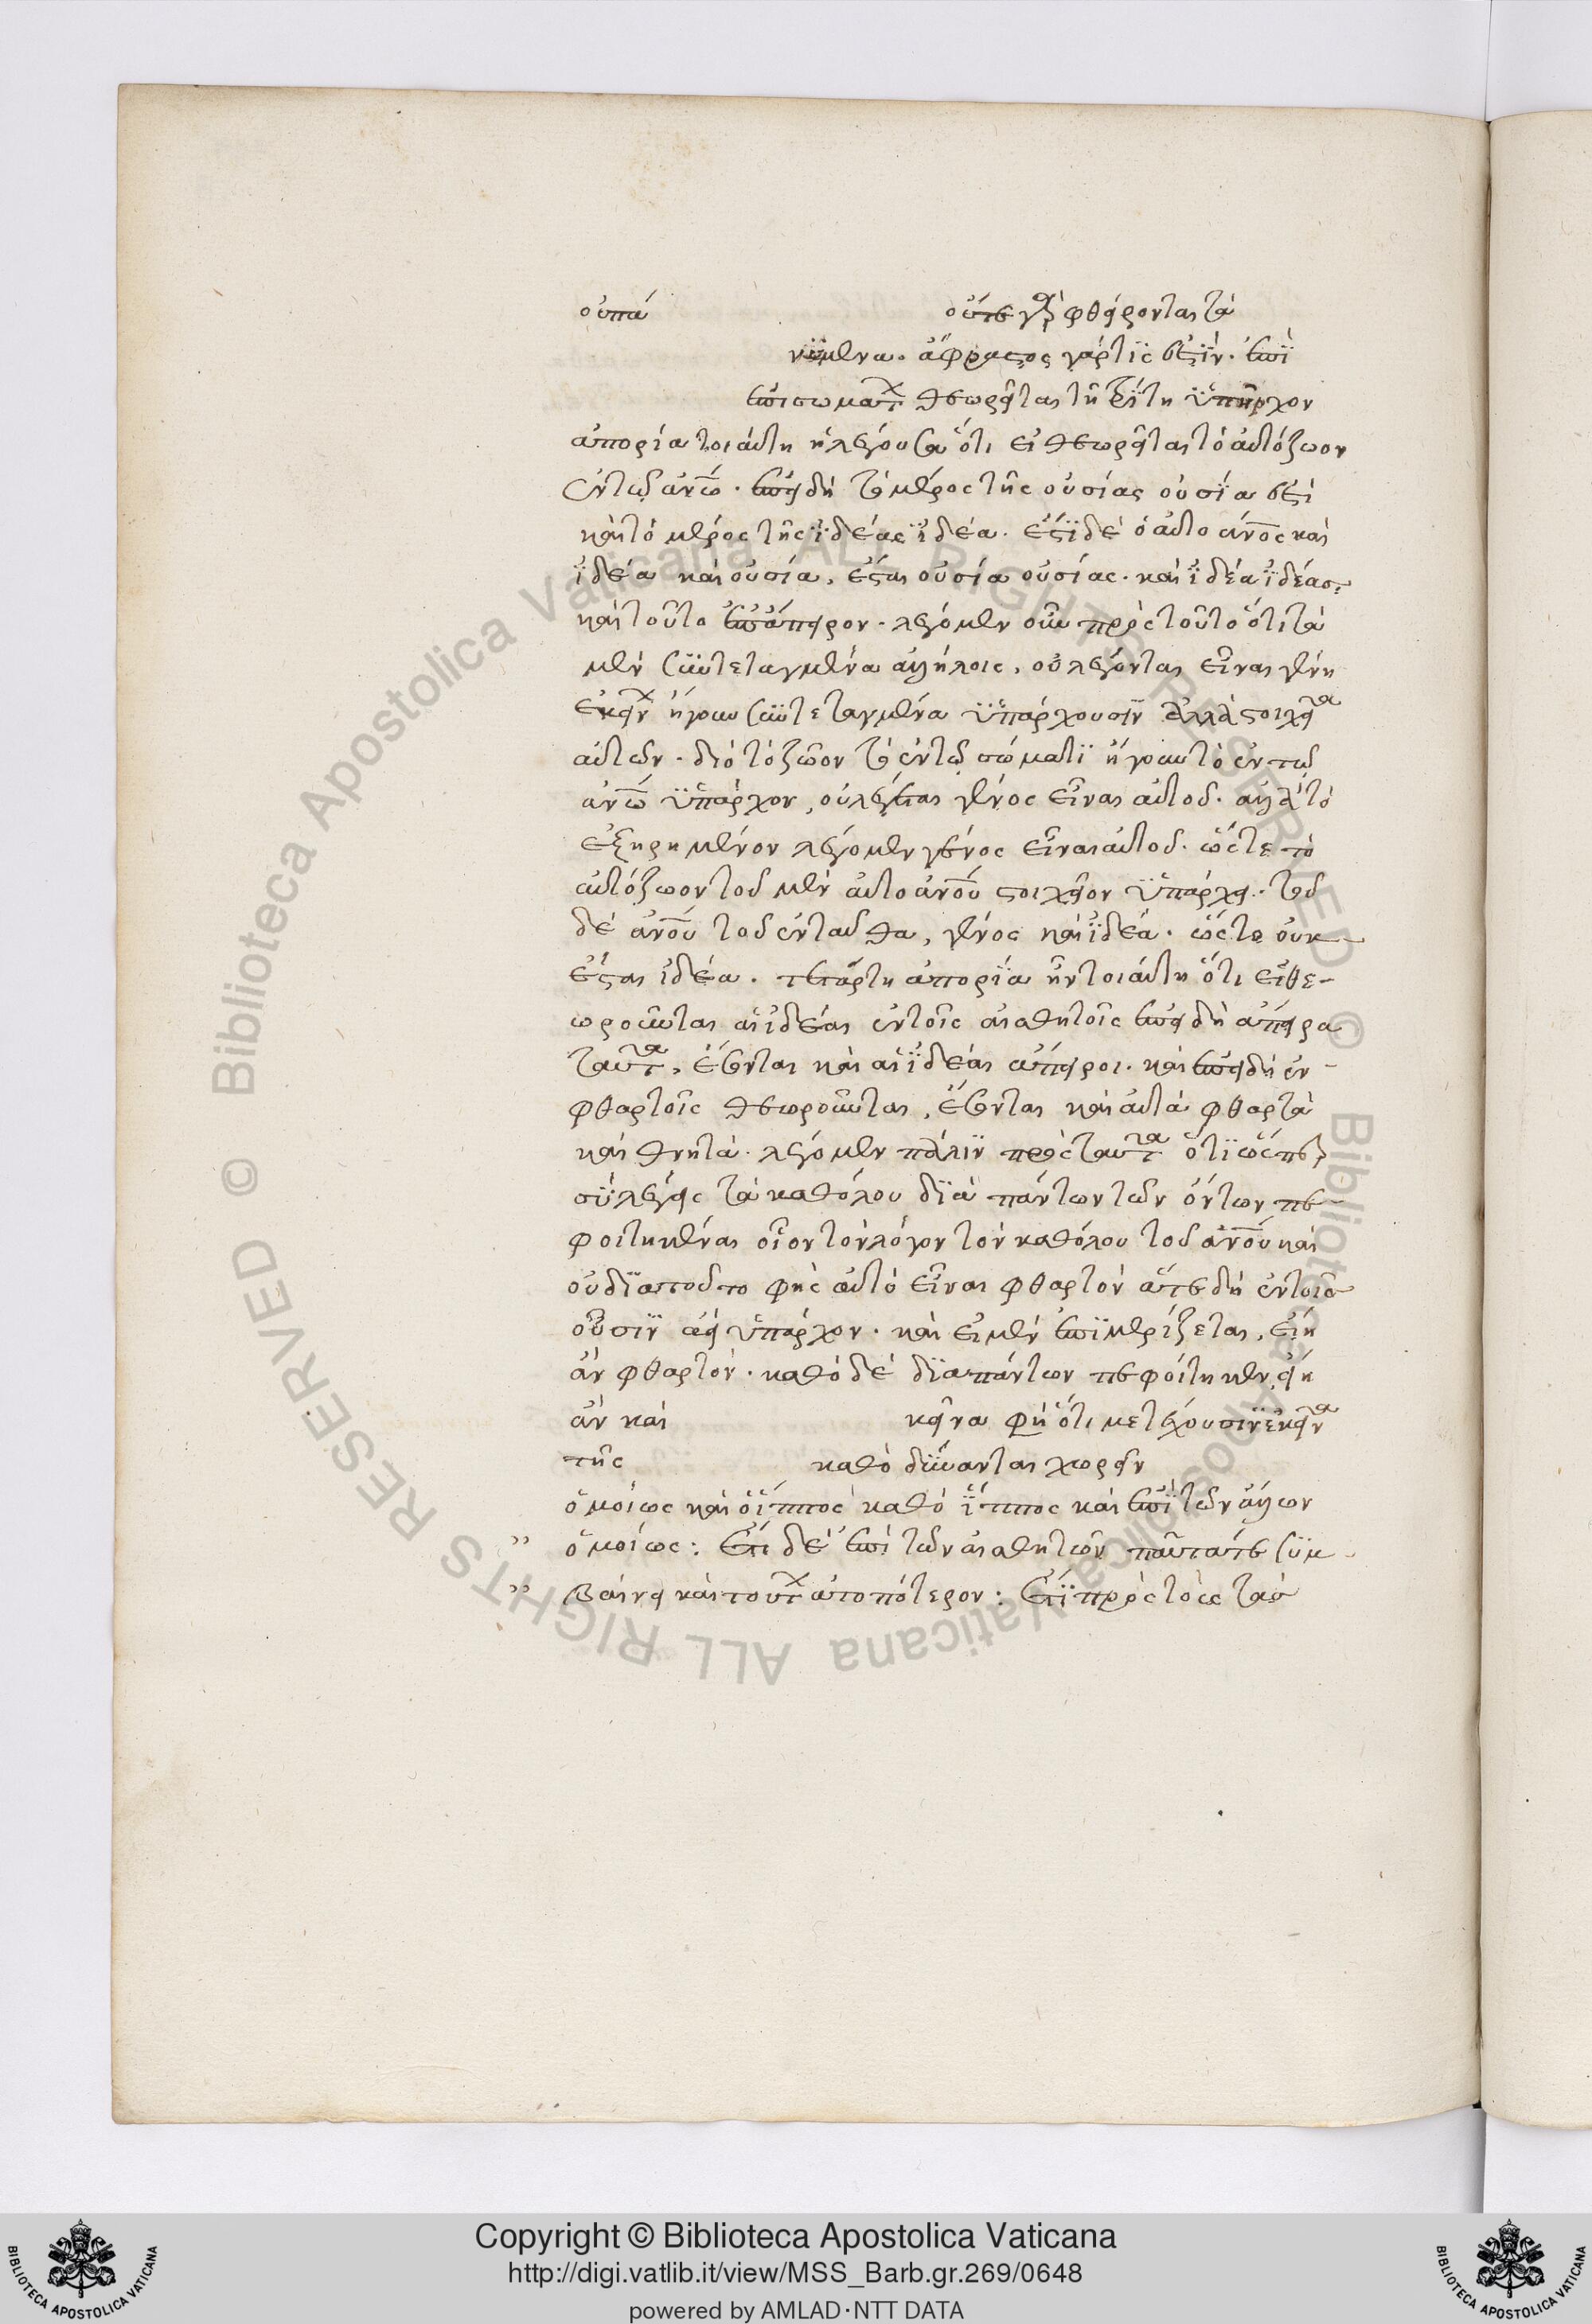 οὐπα οὔτε γὰρ φθείρονται τὰ
νώμενα. ἄφραστος γάρ τίς ἐστιν. ἐπὶ
ἐπὶ σώματος θεωρεῖται τῇ τρίτῃ ὑπῆρχον
ἀπορία τοιαύτη ἡ λέγουσα ὅτι εἰ θεωρεῖται τὸ αὐτόζωον
ἐν τῷ ἀνω. ἐπειδὴ τὸ μέρος τῆς οὐσίας οὐσία ἐστὶ
καὶ τὸ μέρος τῆς ἰδέας ἰδέα. ἔστι δὲ ὁ αὐτο ανος καὶ
ἰδέα καὶ οὐσία, ἔσται οὐσία οὐσίας. καὶ ἰδέα ἰδέας.
καὶ τοῦτο ἐπ' ἄπειρον. λέγομεν οὖν πρὸς τοῦτο ὅτι τὰ
μὲν συντεταγμένα ἀλλήλοις, οὐ λέγονται εἶναι γένη
ἐκείνων ἤγουν συντεταγμένα ὑπάρχουσιν ἀλλὰ στοιχεῖα
αὐτῶν. διὸ τὸ ζῶον τὸ ἐν τῷ σώματι ἤγουν τὸ ἐν τῷ
ἀνω ὑπάρχον, οὐ λέγεται γένος εἶναι αὐτοῦ. ἀλλὰ τὸ
ἐξῃρημένον λέγομεν γένος εἶναι αὐτοῦ. ὥστε τὸ
αὐτόζωον τοῦ μὲν αὐτοανου στοιχεῖον ὑπάρχει. τοῦ
δὲ ἀνου τοῦ ἐνταῦθα, γένος καὶ ἰδέα. ὥστε οὐκ
ἔσται ἰδέα. τετάρτη ἀπορία ἦν τοιαύτη ὅτι εἰ θε-
ωροῦνται αἱ ἰδέαι ἐν τοῖς αἰσθητοῖς ἐπειδὴ ἄπειρα
ταῦτα, ἔσονται καὶ αἱ ἰδέαι ἄπειροι. καὶ ἐπειδὴ ἐν
φθαρτοῖς θεωροῦνται, ἔσονται καὶ αὐτὰ φθαρτὰ
καὶ θνητά. λέγομεν πάλιν πρὸς ταῦτα ὅτι ὥσπερ
σὺ λέγεις τὰ καθόλου διὰ πάντων τῶν ὄντων πε-
φοιτηκέναι οἷον τὸν λόγον τὸν καθόλου τοῦ ἀνου καὶ
οὐ διὰ τοῦτο φῂς αὐτὸ εἶναι φθαρτὸν ἅτε δὴ ἐν τοῖς
οὖσιν ἀεὶ ὑπάρχον. καὶ εἰ μὲν ἐπιμερίζεται, εἴη
ἂν φθαρτόν. καθὸ δὲ διὰ πάντων πεφοίτηκεν εἴη
ἂν καὶ κεῖνα φὴ ὅτι μετέχουσιν ἐκεῖνα
τῆς καθὸ δύνανται χωρεῖν
ὁμοίως καὶ ὁ ἵππος καθὸ ἵππος καὶ ἐπὶ τῶν ἄλλων
" ὁμοίως: Ἔτι δὲ ἐπὶ τῶν αἰσθητῶν ταῦτά τε συμ
" βαίνει καὶ τούτων ἀτοπότερον: Ἔτι πρὸς τὸ ὡς τὰς
Copyright © Biblioteca Apostolica Vaticana
http://digi.vatlib.it/view/MSS_Barb.gr.269/0648
powered by AMLAD·NTT DATA